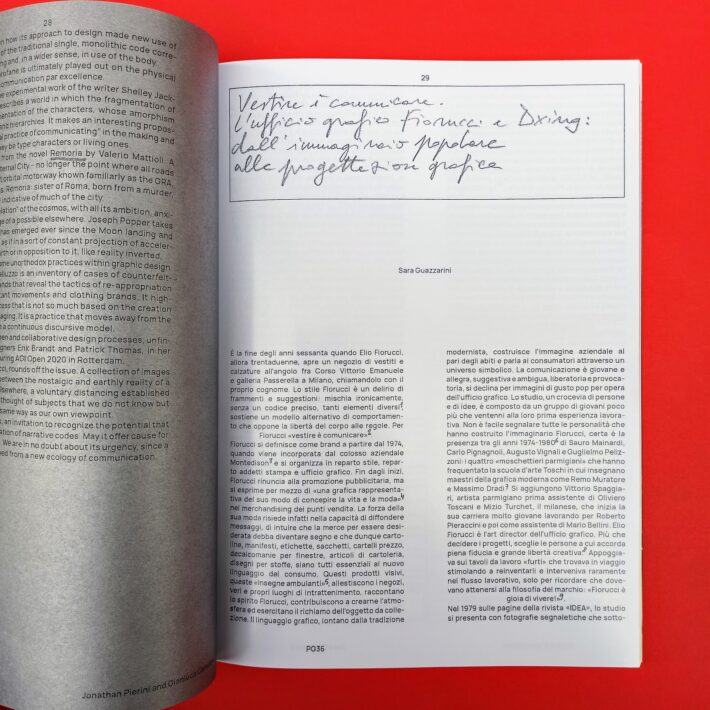 28
n how its approach to design made new use of
of the traditional single, monolithic code corre-
ng and, in a wider sense, in use of the body.
rofane is ultimately played out on the physical
ommunication par excellence.
he experimental work of the writer Shelley Jack-
escribes a world in which the fragmentation of
entation of the characters, whose amorphism
and hierarchies. It makes an interesting propos-
al practice of communicating" in the making and
y be type characters or living ones.
from the novel Remoria by Valerio Mattioli. A
ernal City – no longer the point where all roads
t orbital motorway known familiarly as the GRA,
s. Remoria: sister of Roma, born from a murder,
indicative of much of the city
elation" of the cosmos, with all its ambition, anxi-
ge of a possible elsewhere. Joseph Popper takes
has emerged ever since the Moon landing and
as if in a sort of constant projection of acceler-
rth or in opposition to it, like reality inverted.
ome unorthodox practices within graphic design
elluzzo is an inventory of cases of counterfeit-
ands that reveal the tactics of re-appropriation
tant movements and clothing brands. It high-
cess that is not so much based on the creation
aging. It is a practice that moves away from the
a continuous discursive model.
pen and collaborative design processes, unfin-
gners Erik Brandt and Patrick Thomas, in her
uring AGI Open 2020 in Rotterdam.
cci, rounds off the issue. A collection of images
between the nostalgic and earthly reality of a
lsewhere, a voluntary distancing established
thought of subjects that we do not know but
same way as our own viewpoint.
s, an invitation to recognize the potential that
ation of narrative codes. May it offer cause for
We are in no doubt about its urgency, since a
eed from a new ecology of communication.
Jonathan Pierini and Gianluca
29
Vestire è comunicare.
L'ufficio grafico Fiorucci e Dxing:
dall'immaginario popolare
alla progettazione grafica
Sara Guazzarini
È la fine degli anni sessanta quando Elio Fiorucci,
allora trentaduenne, apre un negozio di vestiti e
calzature all'angolo fra Corso Vittorio Emanuele
e galleria Passerella a Milano, chiamandolo con il
proprio cognome. Lo stile Fiorucci è un delirio di
frammenti e suggestioni: mischia ironicamente,
senza un codice preciso, tanti elementi diversi¹,
sostiene un modello alternativo di comportamen-
to che oppone la libertà del corpo alle regole. Per
Fiorucci «vestire è comunicare»².
Fiorucci si definisce come brand a partire dal 1974,
quando viene incorporata dal colosso aziendale
Montedison³ e si organizza in reparto stile, repar-
to addetti stampa e ufficio grafico. Fin dagli inizi,
Fiorucci rinuncia alla promozione pubblicitaria, ma
si esprime per mezzo di «una grafica rappresenta-
tiva del suo modo di concepire la vita e la moda»⁴
nel merchandising dei punti vendita. La forza della
sua moda risiede infatti nella capacità di diffondere
messaggi, di intuire che la merce per essere desi-
derata debba diventare segno e che dunque carto-
line, manifesti, etichette, sacchetti, cartelli prezzo,
decalcomanie per finestre, articoli di cartoleria,
disegni per stoffe, siano tutti essenziali al nuovo
linguaggio del consumo. Questi prodotti visivi,
queste «insegne ambulanti»⁵, allestiscono i negozi,
veri e propri luoghi di intrattenimento, raccontano
lo spirito Fiorucci, contribuiscono a crearne l'atmo-
sfera ed esercitano il richiamo dell'oggetto da colle-
zione. Il linguaggio grafico, lontano dalla tradizione
modernista, costruisce l'immagine aziendale al
pari degli abiti e parla ai consumatori attraverso un
universo simbolico. La comunicazione è giovane e
allegra, suggestiva e ambigua, liberatoria e provoca-
toria, si declina per immagini di gusto pop per opera
dell'ufficio grafico. Lo studio, un crocevia di persone
e di idee, è composto da un gruppo di giovani poco
più che ventenni alla loro prima esperienza lavora-
tiva. Non è facile segnalare tutte le personalità che
hanno costruito l'immaginario Fiorucci, certa è la
presenza tra gli anni 1974-1980⁶ di Sauro Mainardi,
Carlo Pignagnoli, Augusto Vignali e Guglielmo Peliz-
zoni: i quattro «moschettieri parmigiani» che hanno
frequentato la scuola d'arte Toschi in cui insegnano
maestri della grafica moderna come Remo Muratore
e Massimo Dradi.⁷ Si aggiungono Vittorio Spaggia-
ri, artista parmigiano prima assistente di Oliviero
Toscani e Mizio Turchet, il milanese, che inizia la
sua carriera molto giovane lavorando per Roberto
Pieraccini e poi come assistente di Mario Bellini. Elio
Fiorucci è l'art director dell'ufficio grafico. Più che
decidere i progetti, sceglie le persone a cui accorda
piena fiducia e grande libertà creativa.⁸ Appoggia-
va sul tavoli da lavoro «furti» che trovava in viaggio
stimolando a reinventarli e interveniva raramente
nel flusso lavorativo, solo per ricordare che dove-
vano attenersi alla filosofia del marchio: «Fiorucci è
gioia di vivere!».⁹
Nel 1979 sulle pagine della rivista «IDEA», lo studio
si presenta con fotografie segnaletiche che sotto-
PG36